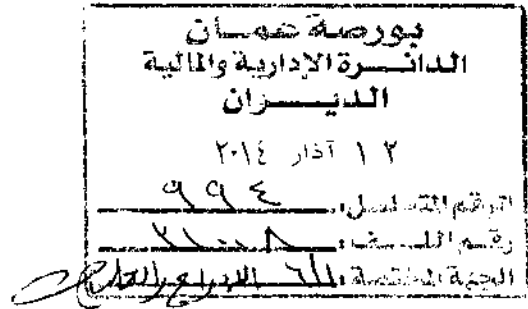 بورصة عمان
الدائرة الإدارية والمالية
الديوان
١٢ آذار ٢٠١٤
الرقم المتسلسل: ٩٩٤
رقم الملف:
الجهة المختصة: الادراج